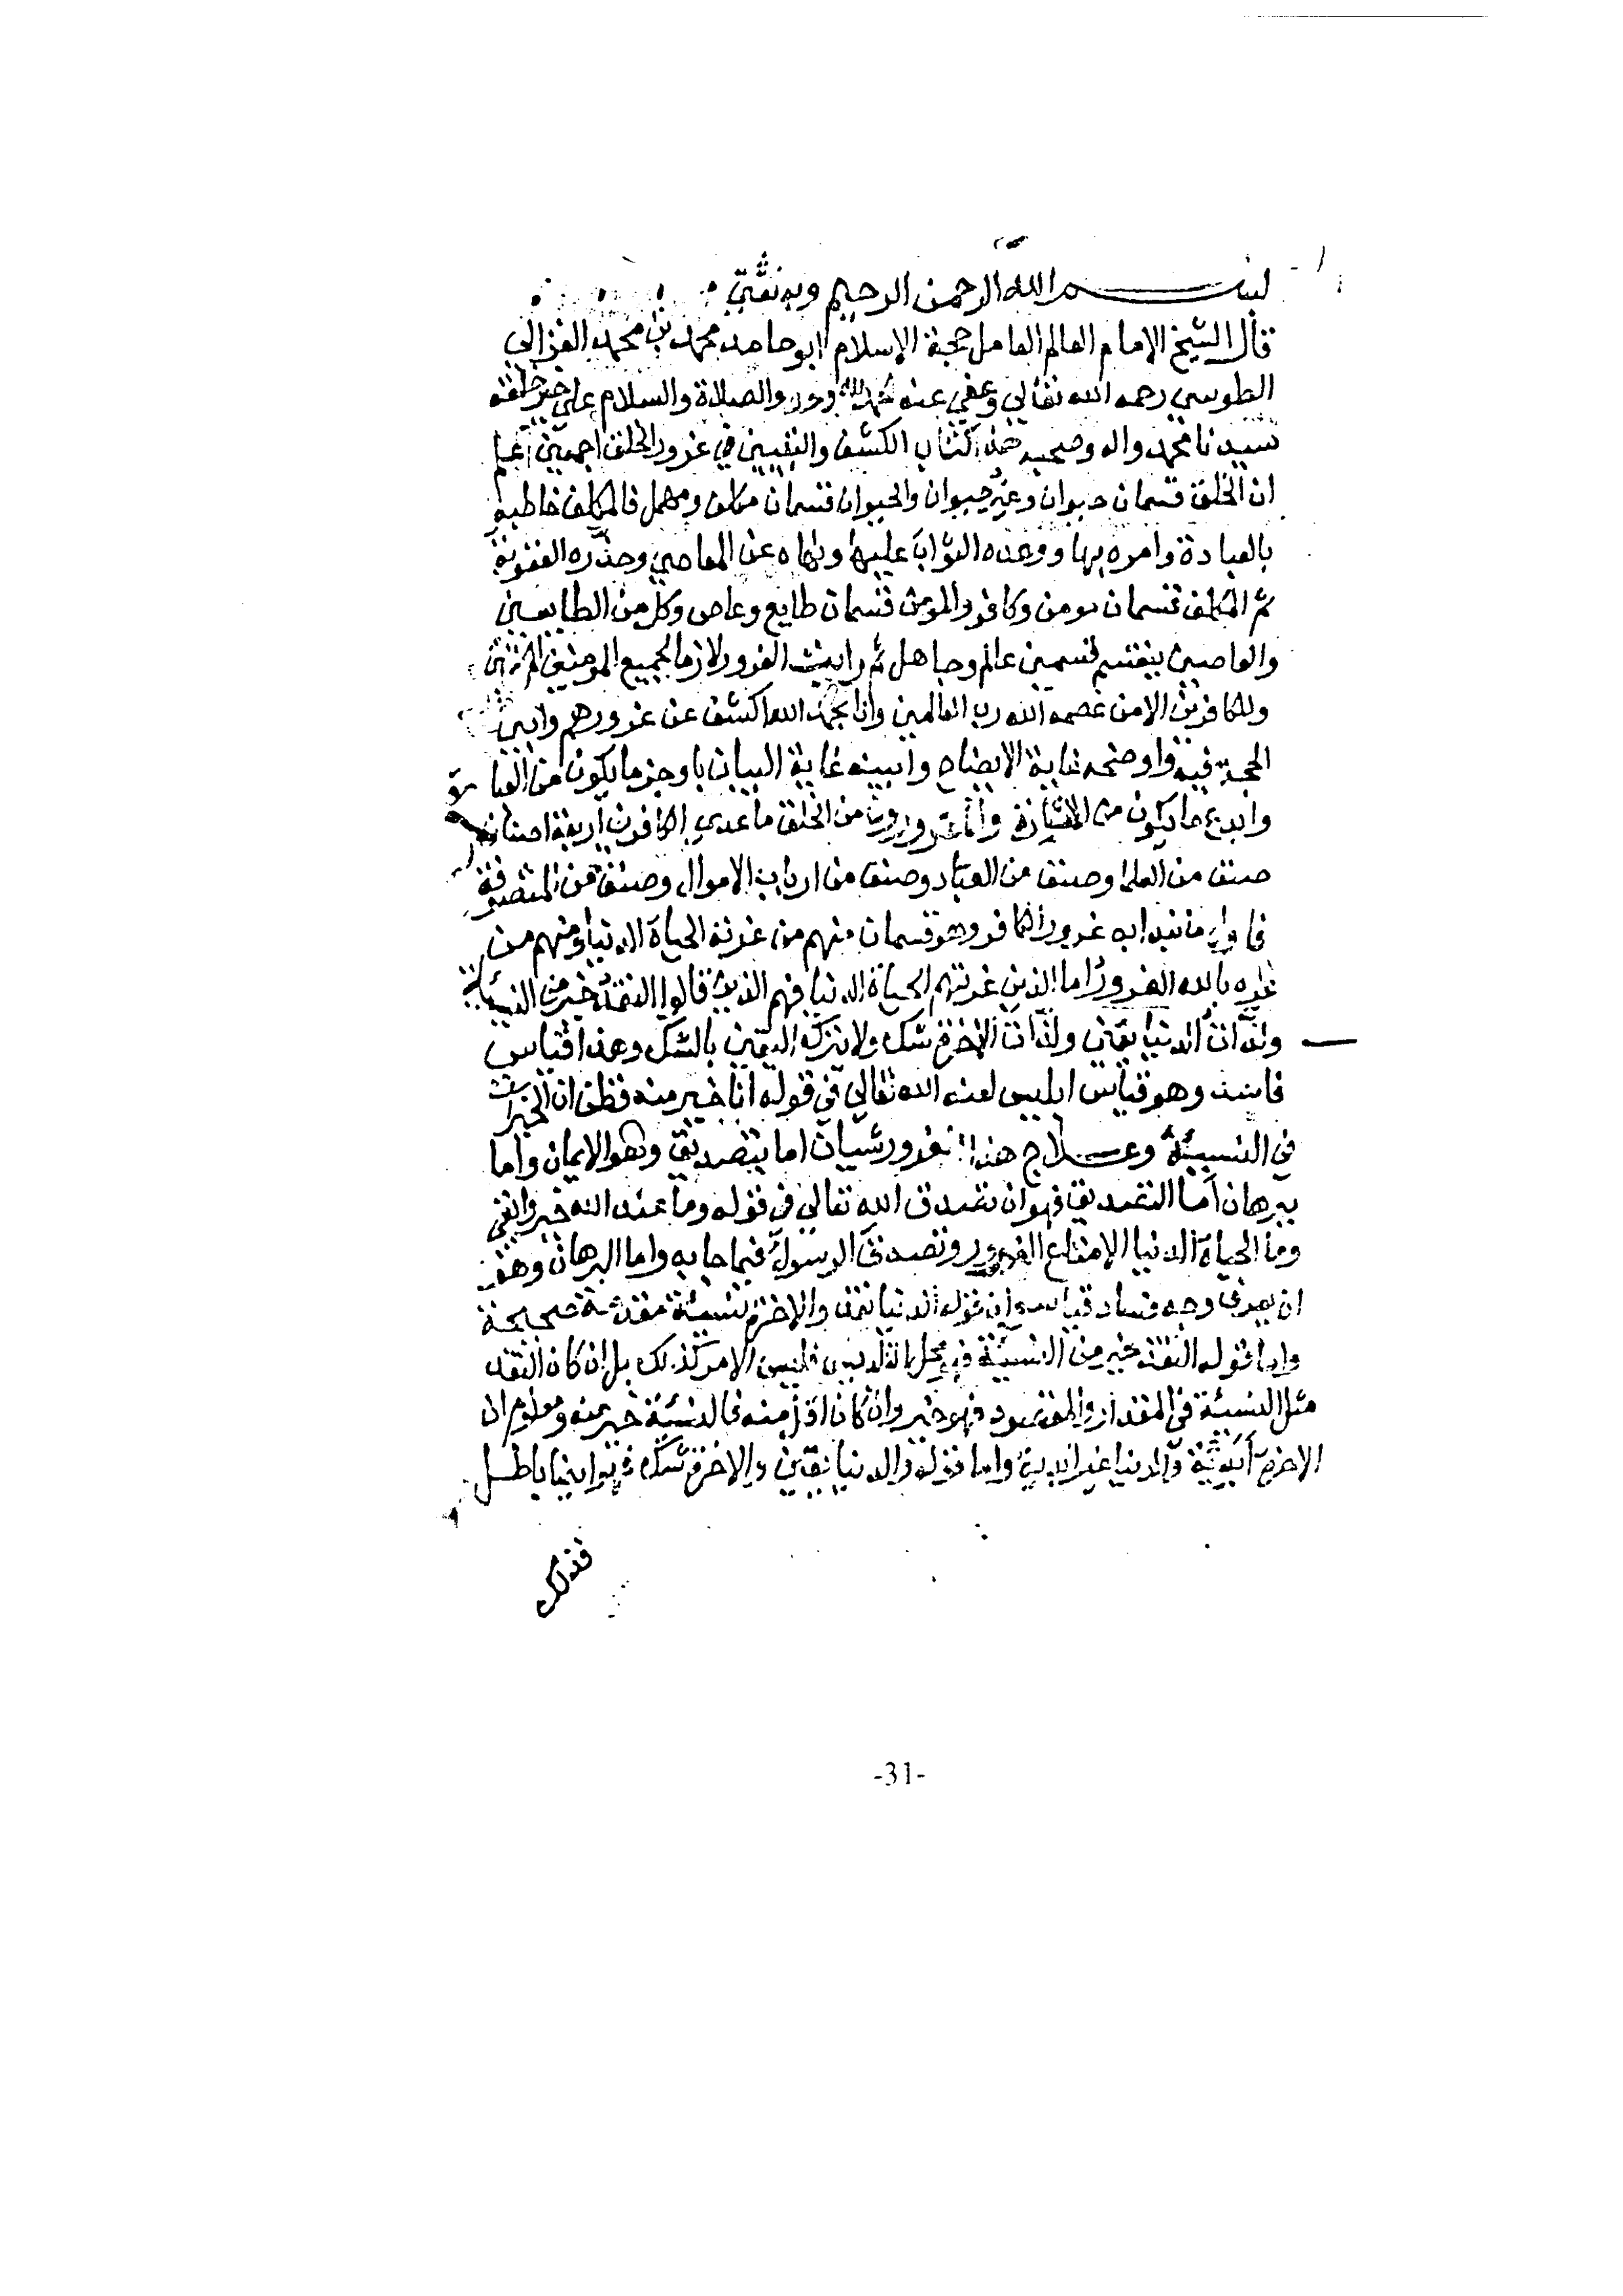 بسم الله الرحمن الرحيم وبه ثقتي
قال الشيخ الامام العالم العامل حجة الاسلام ابو حامد محمد بن محمد الغزالي
الطوسي رحمه الله تعالي وعفي عنه الحمد لله وحده والصلاة والسلام علي خير خلقه
سيدنا محمد واله وصحبه هذا كتاب الكشف والتبيين في غرور الخلق اجمعين اعلم
ان الخلق قسمان حيوان وغير حيوان والحيوان قسمان مكلف ومهمل فالمكلف خاطبه
بالعبادة وامره بها ووعده الثواب عليها ونهاه عن المعاصي وحذره العقوبة
ثم المكلف قسمان مومن وكافر والمومن قسمان طايع وعاص وكل من الطايعين
والعاصين ينقسم قسمين عالم وجاهل ثم رايت الغرور لازما لجميع المومنين المكلفين
والكافرين الا من عصمه الله رب العالمين وانا بحمد الله اكشف عن غرورهم وابين
الحجة فيه واوضحه غاية الايضاح وابينه غاية البيان باوجز ما يكون من العبارة
وابدع ما يكون من الاشارة والمغرورون من الخلق ما عدي الكافرين اربعة اصناف
صنف من العلما وصنف من العباد وصنف من ارباب الاموال وصنف من المتصوفة
فاول ما نبدا به غرور الكافر وهو قسمان منهم من غرته الحياة الدنيا ومنهم من
غره بالله الغرور اما الذين غرتهم الحياة الدنيا فهم الذين قالوا النقد خير من النسيئة
ولذات الدنيا يقين ولذات الاخرة شك ولا يترك اليقين بالشك وهذا قياس
فاسد وهو قياس ابليس لعنه الله تعالي في قوله انا خير منه فظن ان الخيرات
في النسيئة وعلاج هذا الغرور شيان اما بتصديق وهو الايمان واما
ببرهان اما التصديق فهو ان تصدق الله تعالي في قوله وما عند الله خير وابقي
وما الحياة الدنيا الا متاع الغرور وتصدق الرسول فيما جا به واما البرهان وهو
ان يعرف وجه فساد قياسه ان قوله الدنيا نقد والاخرة نسيئة مقدمة صحيحة
واما قوله النقد خير من النسيئة فهو محل التلبيس فليس الامر كذلك بل ان كان النقد
مثل النسيئة في المقدار والمقصود فهو خير وان كان اقل منه فالنسيئة خير منه ومعلوم ان
الاخرة ابدية والدنيا غير ابدية واما قوله والدنيا يقين والاخرة شك فهو ايضا باطل
فذلك
-31-